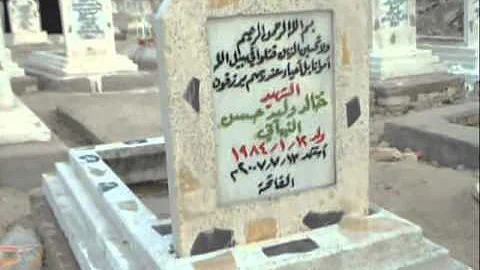 بسم الله الرحمن الرحيم
ولا تحسبن الذين قتلوا في سبيل الله
أمواتا بل أحياء عند ربهم يرزقون
الشهيد
خالد وليد حسن
ولد ١٢ / ١ / ١٩٨٤
٢٠٠٧ / ٧ / ١٢ م
الفاتحة